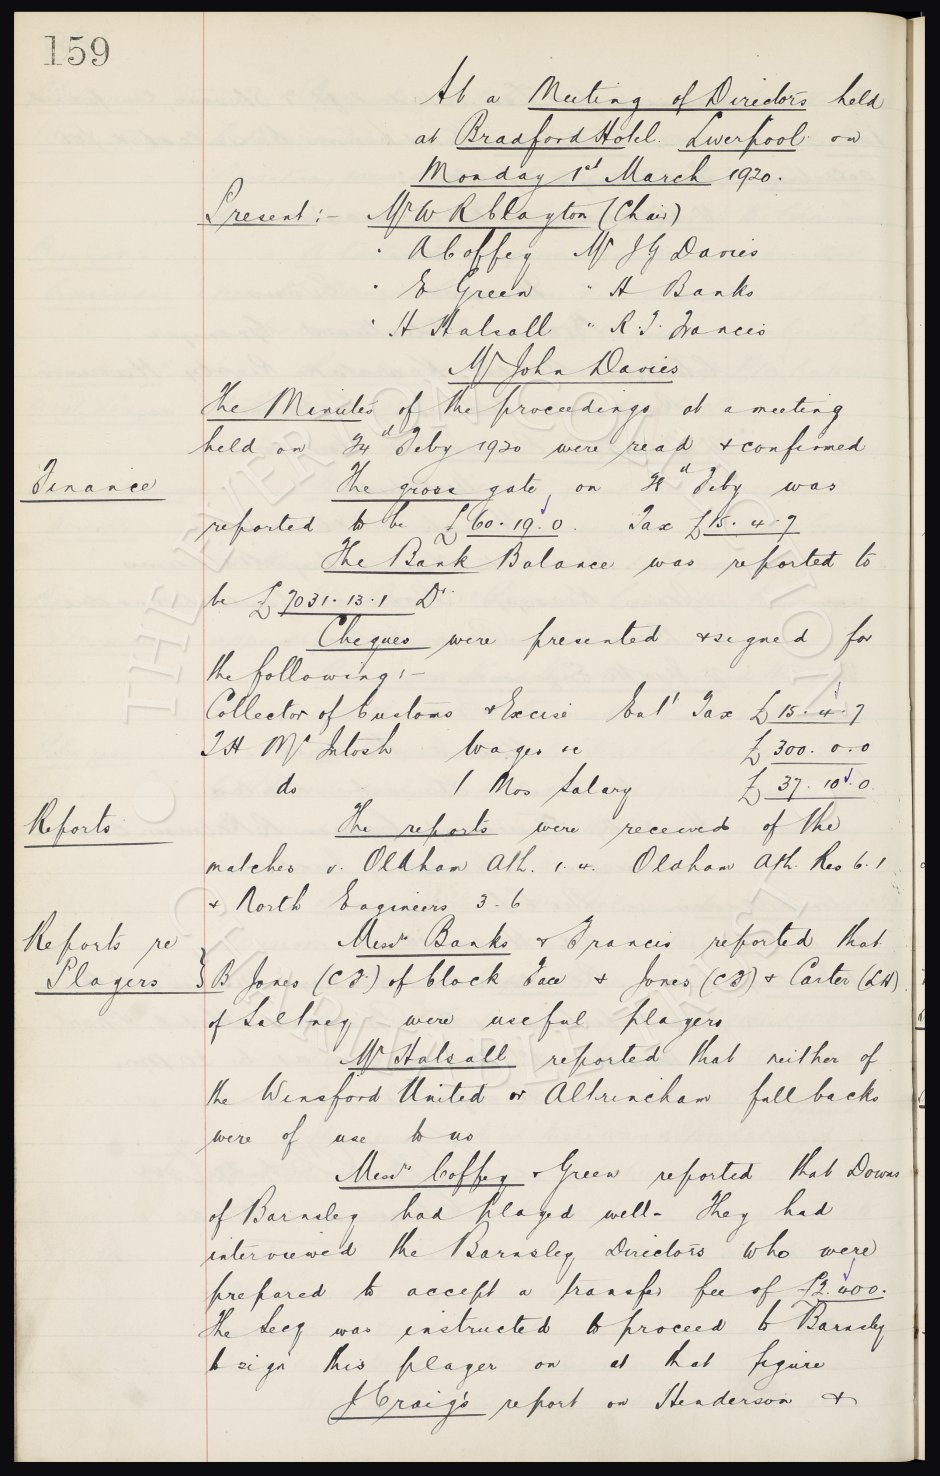 159
At a Meeting of Directors held
at Bradford Hotel. Liverpool on
Monday 1st March 1920.
Present:- Mr W R Clayton (Chair)
" A Coffey Mr J G Davies
" E Green " H Banks
" H Halsall " R. J. Francis
Mr John Davies
The Minutes of the proceedings at a meeting
held on 24th Feby 1920 were read & confirmed
Finance
The gross gate, on Feby was
reported to be £60.19.0. Tax £15.4.7
The Bank Balance was reported to
be £7031.13.1 Dr.
Cheques were presented & signed for
the following:-
Collector of Customs & Excise Ent' Tax £15.4.7
T H McIntosh Wages &c £300.0.0
do 1 Mos Salary £37.10.0.
Reports
The reports were received of the
matches v. Oldham Ath. 1.4. Oldham Ath. Res 6.1
& North Engineers 3-6
Reports re
Players
Messrs Banks & Francis reported that
B Jones (CF) of Clock Face & Jones (CF) & Carter (LH)
of Saltney were useful players
Mr Halsall reported that neither of
the Winsford United or Altrincham full backs
were of use to us
Messrs Coffey & Green reported that Downs
of Barnsley had played well. They had
interviewed the Barnsley Directors who were
prepared to accept a transfer fee of £2.400.
The Secy was instructed to proceed to Barnsley
to sign this player on at that figure
J Craig's report on Henderson &
THE EVERTON COLLECTION